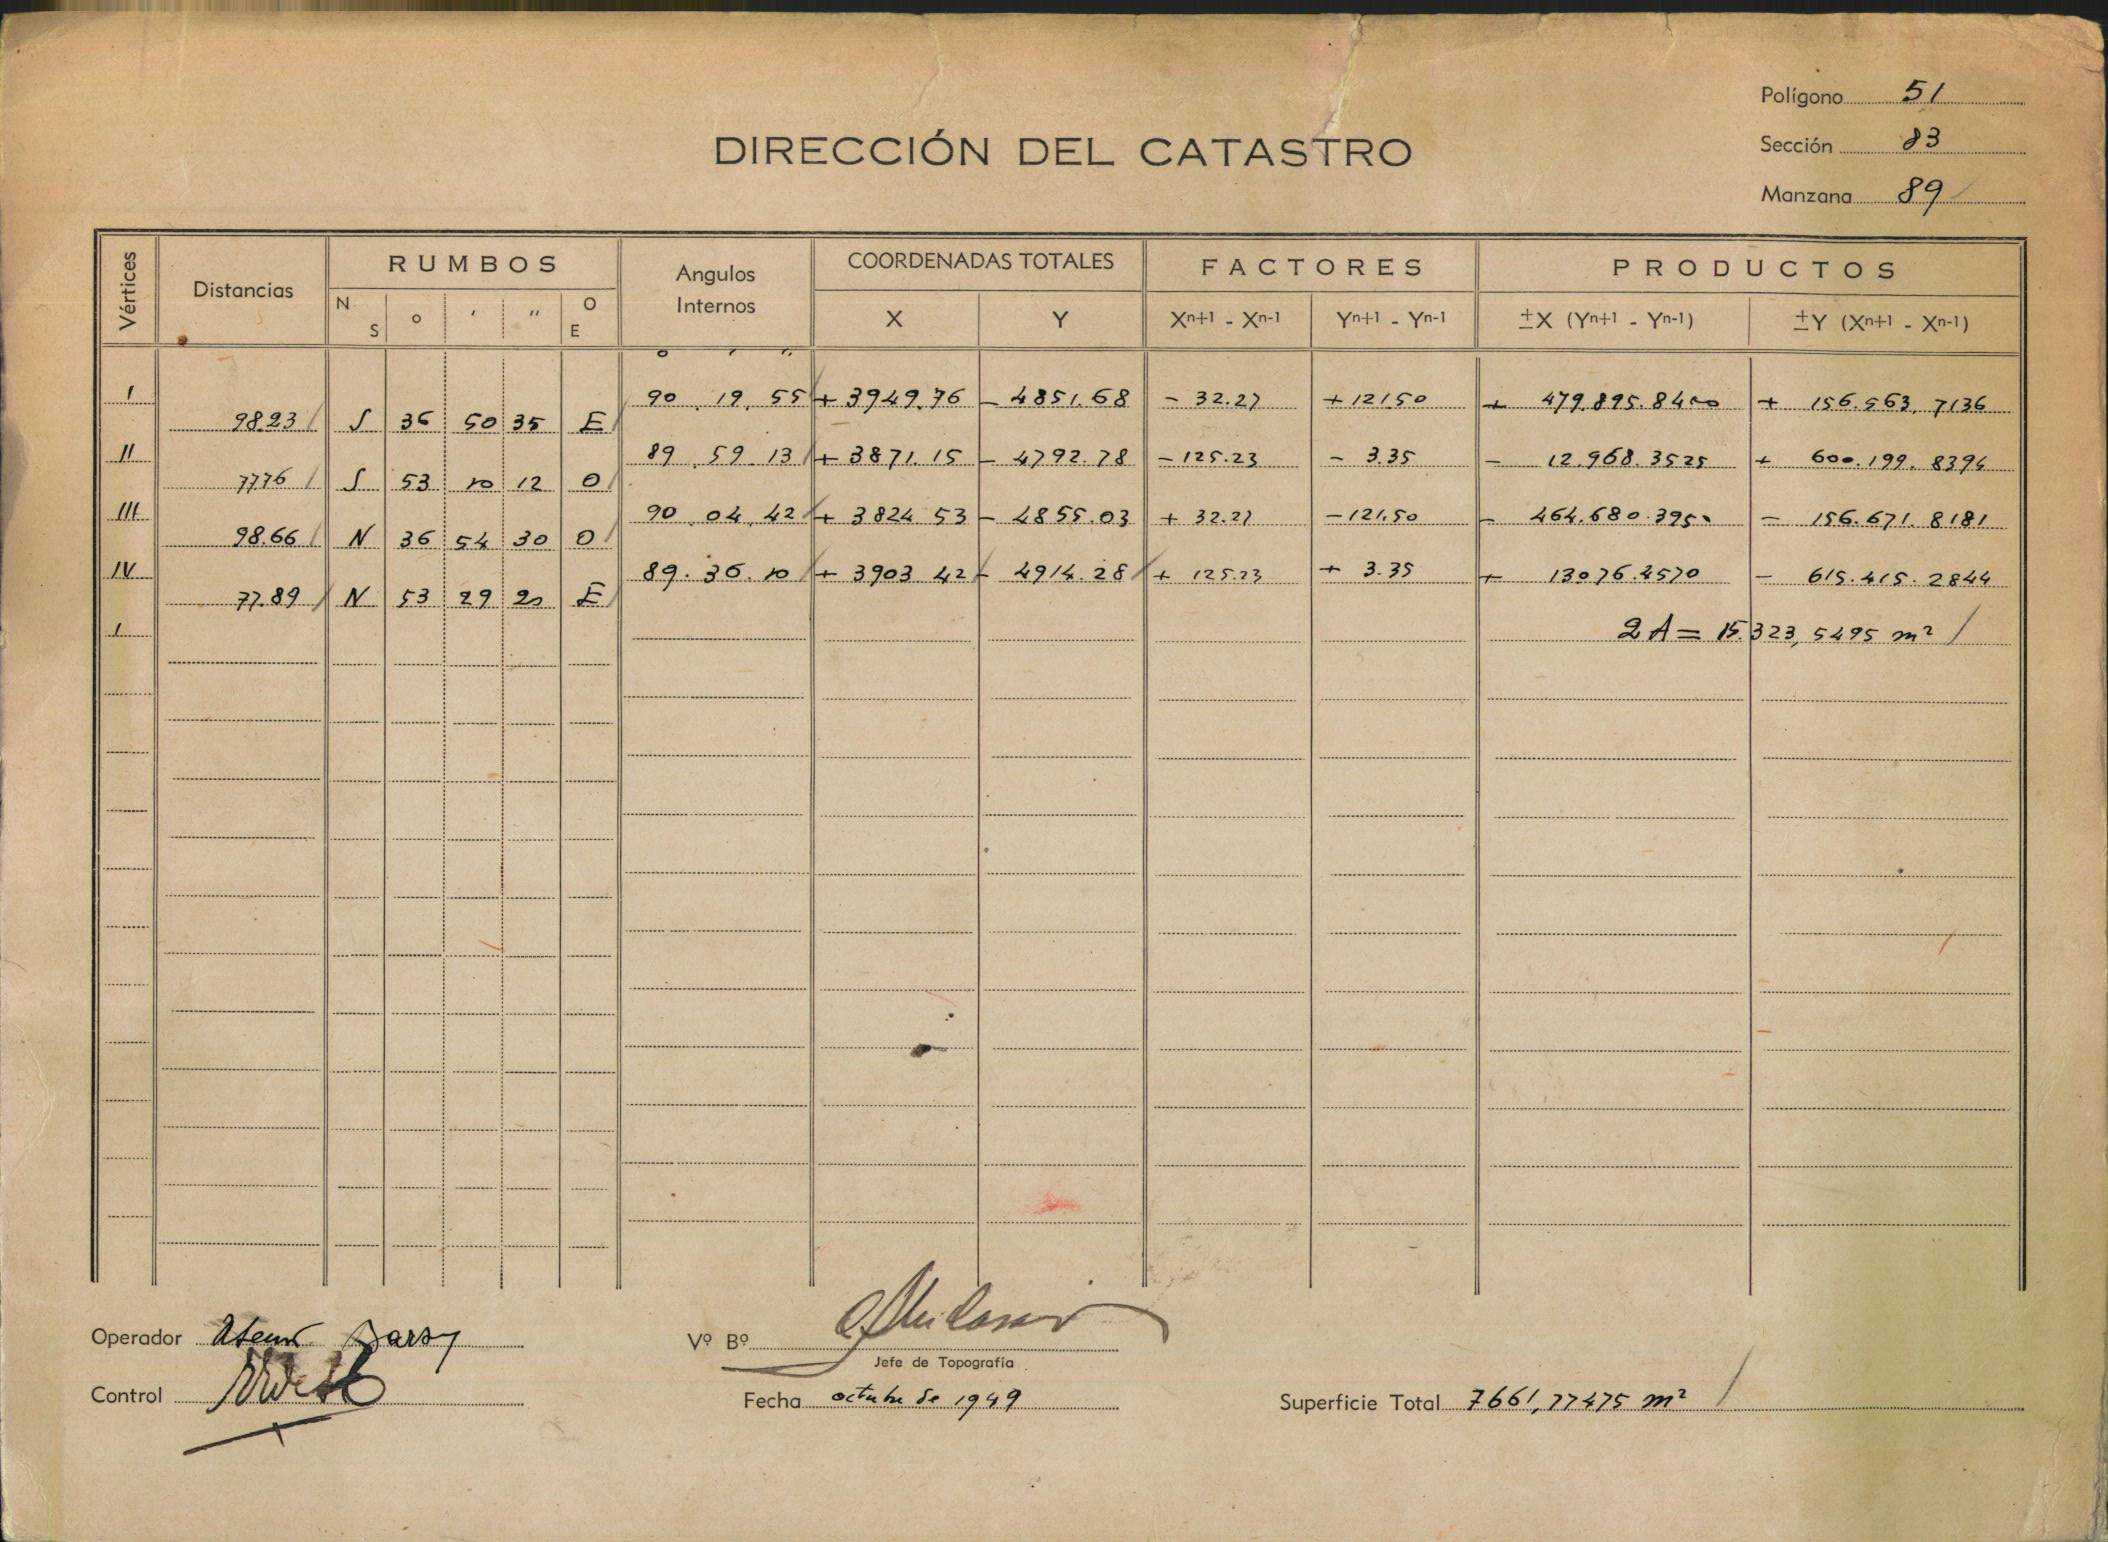 Polígono 51
DIRECCIÓN DEL CATASTRO
Sección 83
Manzana 89
Vértices Distancias RUMBOS Angulos Internos COORDENADAS TOTALES FACTORES PRODUCTOS
N S ° ' " O E X Y Xn+1 - Xn-1 Yn+1 - Yn-1 ±X (Yn+1 - Yn-1) ±Y (Xn+1 - Xn-1)
° ' "
I 90 . 19 . 55 + 3949.76 - 4851.68 - 32.27 + 121.50 + 479.895.8400 + 156.563,7136
98.23 S 36 50 35 E
II 89 . 59 . 13 + 3871.15 - 4792.78 - 125.23 - 3.35 - 12.968.3525 + 600.199.8394
77.76 S 53 10 12 O
III 90 . 04 . 42 + 3824.53 - 4855.03 + 32.27 - 121.50 - 464.680.3950 - 156.671.8181
98.66 N 36 54 30 O
IV 89 . 36 . 10 + 3903.42 - 4914.28 + 125.23 + 3.35 + 13076.4570 - 615.415.2844
77.89 N 53 29 20 E
I 2A = 15.323,5495 m²
Operador
Vº Bº
Jefe de Topografía
Control
Fecha octubre de 1949
Superficie Total 7661,77475 m²